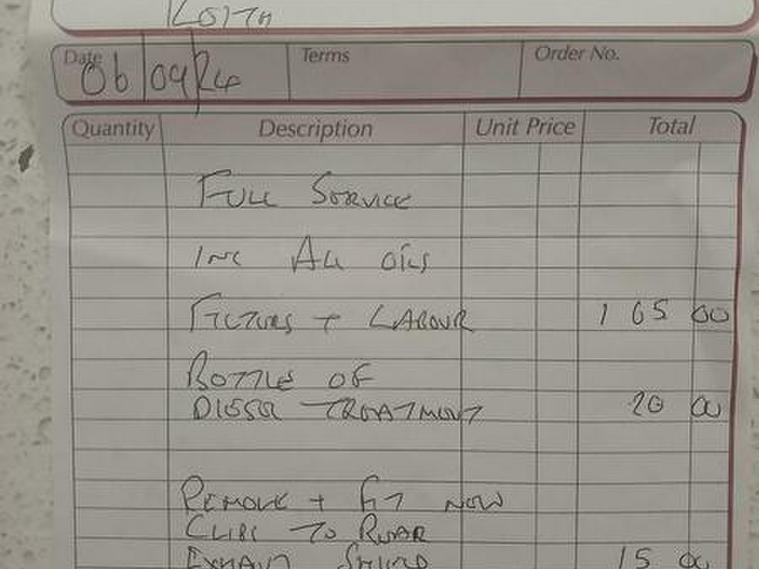 Date 06/09/24 Terms Order No.
Quantity Description Unit Price Total
FULL SERVICE
INC ALL OILS
FILTERS + LABOUR 165 00
BOTTLE OF
DIESEL TREATMENT 20 00
REMOVE + FIT NEW
CLIPS TO REAR
EXHAUST SHIELD 15 00